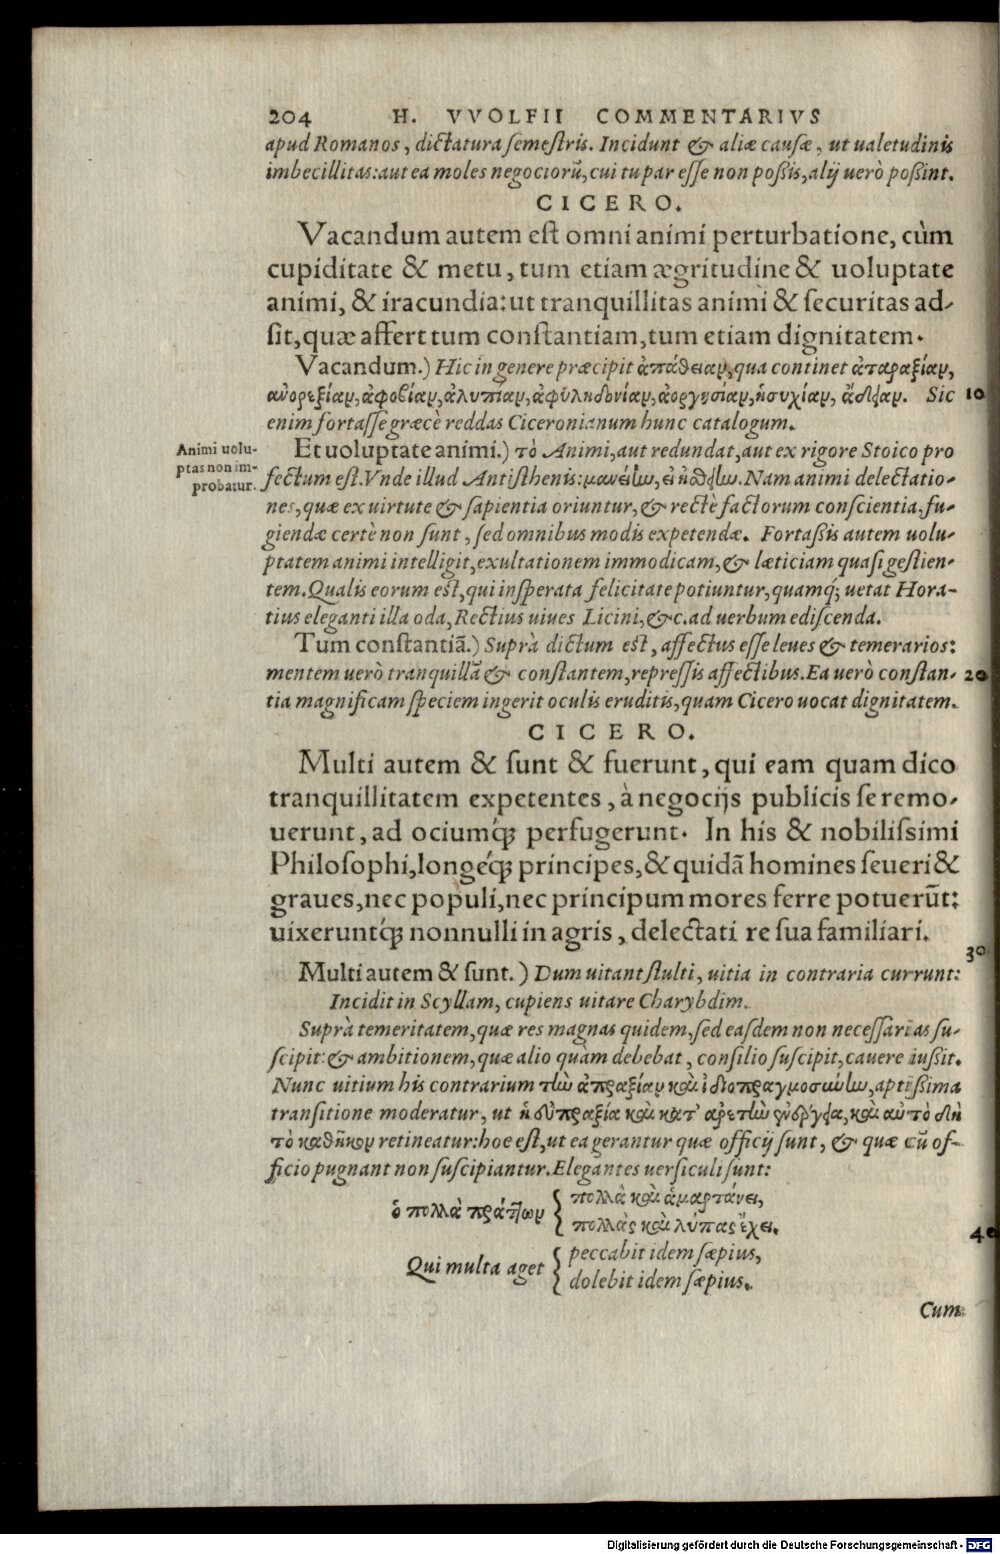 204 H. VVOLFII COMMENTARIVS
apud Romanos, dictatura semestris. Incidunt & aliæ causæ, ut ualetudinis
imbecillitas: aut ea moles negociorũ, cui tu par esse non possis, alij uerò possint.
CICERO.
Vacandum autem est omni animi perturbatione, cùm
cupiditate & metu, tum etiam ægritudine & uoluptate
animi, & iracundia: ut tranquillitas animi & securitas ad-
sit, quæ affert tum constantiam, tum etiam dignitatem.
Vacandum.) Hic in genere præcipit ἀπάθειαν, qua continet ἀταραξίαν,
ἀνορεξίαν, ἀφοβίαν, ἀλυπίαν, ἀφιληδονίαν, ἀοργησίαν, ἡσυχίαν, ἄδειαν. Sic 10
enim fortasse græcè reddas Ciceronianum hunc catalogum.
Animi uolu-
ptas non im-
probatur.
Et uoluptate animi.) τὸ Animi, aut redundat, aut ex rigore Stoico pro
fectum est. Vnde illud Antisthenis: μανείην, εἰ ἡσθείην. Nam animi delectatio-
nes, quæ ex uirtute & sapientia oriuntur, & rectè factorum conscientia, fu-
giendæ certè non sunt, sed omnibus modis expetendæ. Fortassis autem uolu-
ptatem animi intelligit, exultationem immodicam, & læticiam quasi gestien-
tem. Qualis eorum est, qui insperata felicitate potiuntur, quamq́; uetat Hora-
tius eleganti illa oda, Rectius uiues Licini, &c. ad uerbum ediscenda.
Tum constantiã.) Suprà dictum est, affectus esse leues & temerarios:
mentem uerò tranquillã & constantem, repressis affectibus. Ea uerò constan- 20
tia magnificam speciem ingerit oculis eruditis, quam Cicero uocat dignitatem.
CICERO.
Multi autem & sunt & fuerunt, qui eam quam dico
tranquillitatem expetentes, à negocijs publicis se remo-
uerunt, ad ociumq́; perfugerunt. In his & nobilissimi
Philosophi, longeq́; principes, & quidã homines seueri &
graues, nec populi, nec principum mores ferre potuerũt:
uixeruntq́; nonnulli in agris, delectati re sua familiari.
30
Multi autem & sunt.) Dum uitant stulti, uitia in contraria currunt:
Incidit in Scyllam, cupiens uitare Charybdim.
Suprà temeritatem, quæ res magnas quidem, sed easdem non necessarias su-
scipit: & ambitionem, quæ alio quàm debebat, consilio suscipit, cauere iussit.
Nunc uitium his contrarium τὴν ἀπραξίαν καὶ ἰδιοπραγμοσύνην, aptissima
transitione moderatur, ut ἡ εὐπραξία καὶ κατ' ἀρετὴν ἐνέργεια, καὶ αὐτὸ δὴ
τὸ καθῆκον retineatur: hoc est, ut ea gerantur quæ officij sunt, & quæ cũ of-
ficio pugnant non suscipiantur. Elegantes uersiculi sunt:
ὁ πολλὰ πράττων { πολλὰ καὶ ἁμαρτάνει,
πολλὰς καὶ λύπας ἔχει.
Qui multa aget { peccabit idem sæpius,
dolebit idem sæpius.
40
Cum
Digitalisierung gefördert durch die Deutsche Forschungsgemeinschaft - DFG